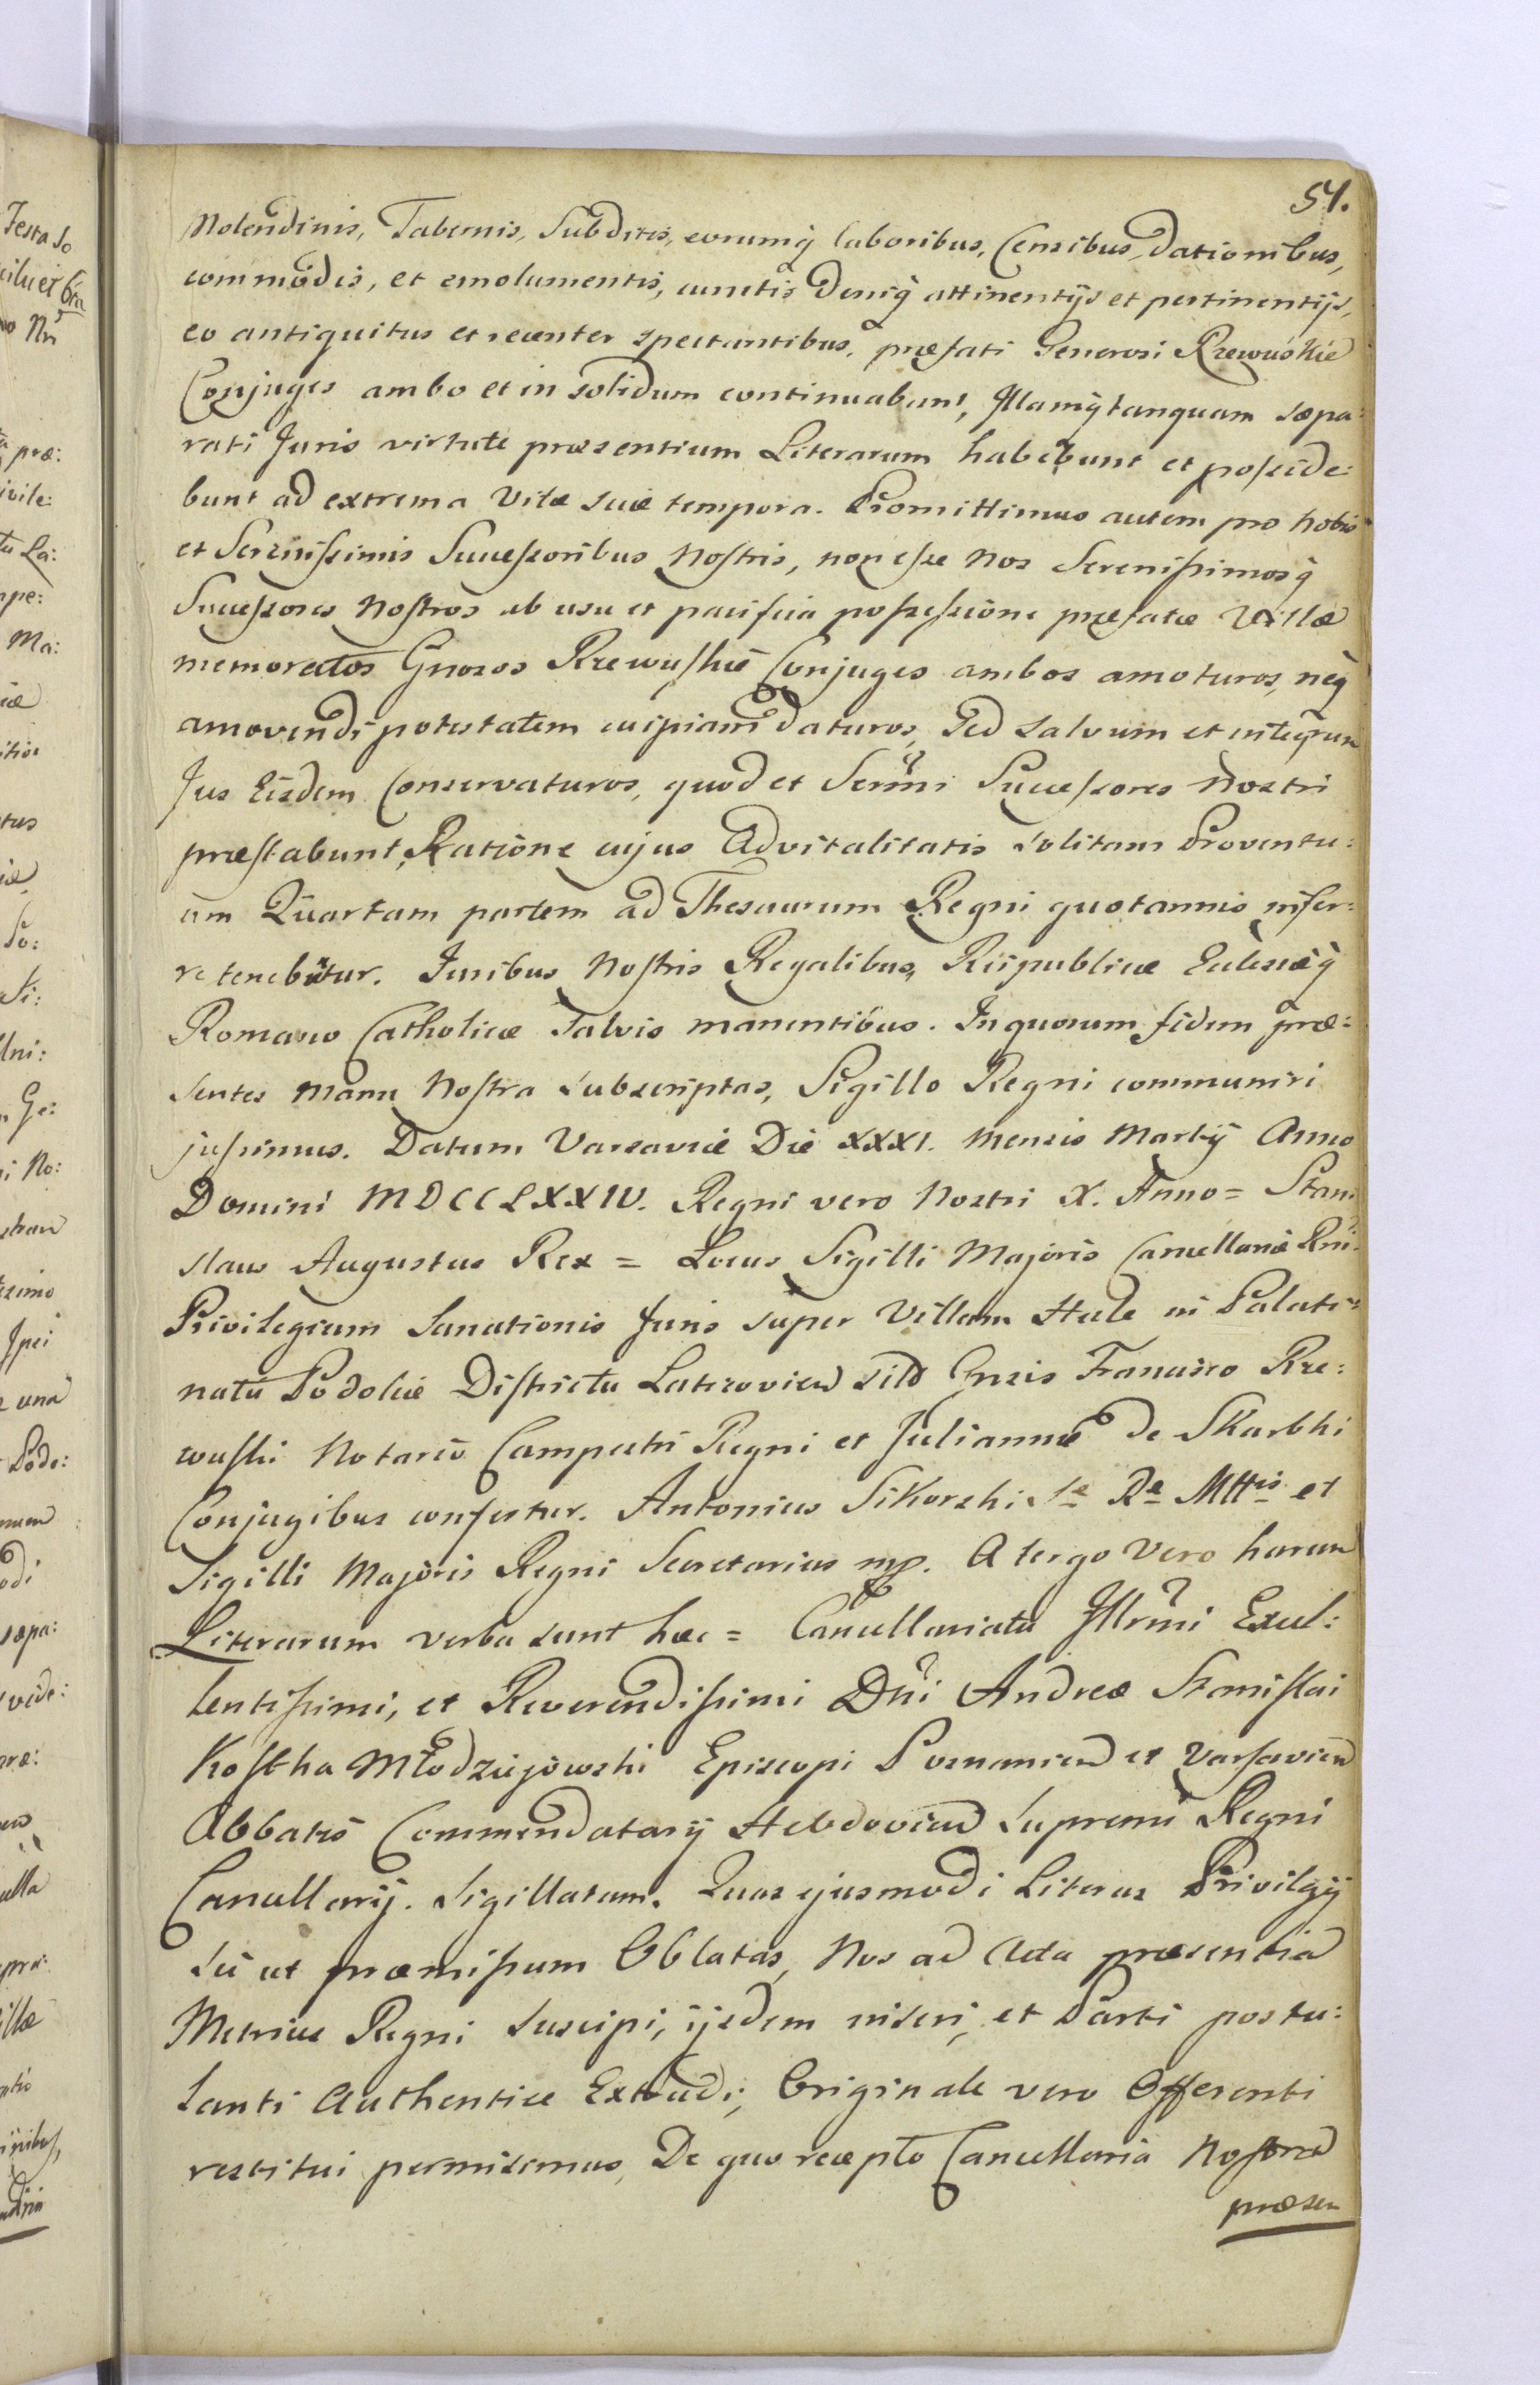 51.
Molendinis, Tabernis, Subditis, eorumq̃ laboribus, Censibus, dationibus,
commodis, et emolumentis, cunctis deniq̃ attinentijs et pertinentijs,
eo antiquitus et recenter spectantibus, præfati Generosi Rzewuskie
Conjuges ambo et in solidum continuabunt, Illamq̃ tanquam sæpa:
rati Juris virtute præsentium Literarum habebunt et posside:
bunt ad extrema Vitæ suæ tempora. Promittimus autem pro Nobis
et Serenissimis Successoribus Nostris, non esse Nos Serenissimosq̃
Successores Nostros ab usu et pacifica possessione præfatæ Villæ
memoratos Gnosos Rzewuskie Conjuges ambos amoturos, neq̃
amovendi potestatem cuipiam daturos, Sed salvum et integrum
Jus Eisdem Conservaturos, quod et Sermi Successores Nostri
præstabunt, Ratione cujus Advitalitatis solitam Proventu:
um Quartam partem ad Thesaurum Regni quotannis infer:
re tenebuntur. Juribus Nostris Regalibus, Reipublicæ Eclesiæq̃
Romano Catholicæ Salvis manentibus. In quorum fidem præ:
sentes Manu Nostra subscriptas, Sigillo Regni communiri
jussimus. Datum Varsaviæ Die XXXI. Mensis Martij Anno
Domini MDCCLXXIV. Regni vero Nostri X. Anno = Stani
slaus Augustus Rex = Locus Sigilli Majoris Cancellariæ Rni.
Privilegium Sanationis Juris super Villam Hule in Palati:
natu Podoliæ Districtu Laticzovien sitã Gnsis Francisco Rze:
wuski Notario Campestri Regni et Juliannæ de Skarbki
Conjugibus confertur. Antonius Sikorski Sæ Ræ Mttis et
Sigilli Majoris Regni Secretarius mp. A tergo vero harum
Literarum verba sunt hæc = Cancellariatu Illrmi Excel:
lentissimi, et Reverendissimi Dni Andreæ Stanislai
Kostka Młodziejowski Episcopi Posnanien et Varsavien
Abbatis Commendatarij Hebdovien Supremi Regni
Cancellarij. Sigillatum. Quas ejusmodi Literas Privilegij
Sũ ut præmissum Oblatas, Nos ad Acta præsentia
Metrices Regni suscipi, ijsdem inseri, et Parti postu:
lanti Authentice Extradi, Originale vero Offerenti
restitui permisimus, De quo recepto Cancellaria Nostra
præsen